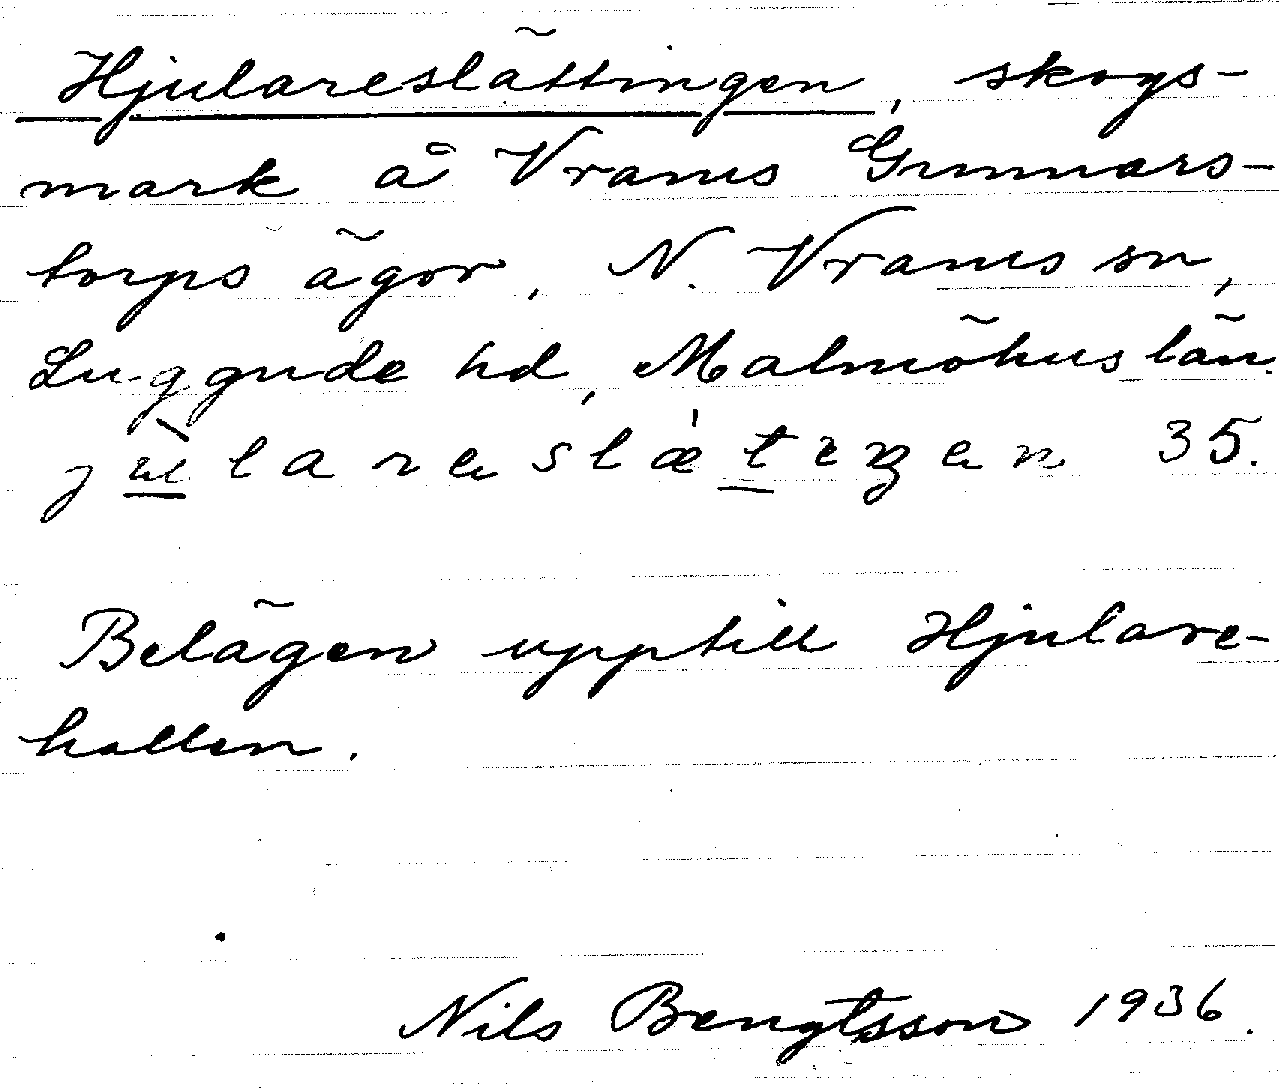 Hjulareslättingen, skogs-
mark å Vrams Gunnars-
torps ägor, N. Vrams sn,
Luggude hd, Malmöhus län.
35.
Belägen upptill Hjulare-
hallen.
Nils Bengtsson 1936.